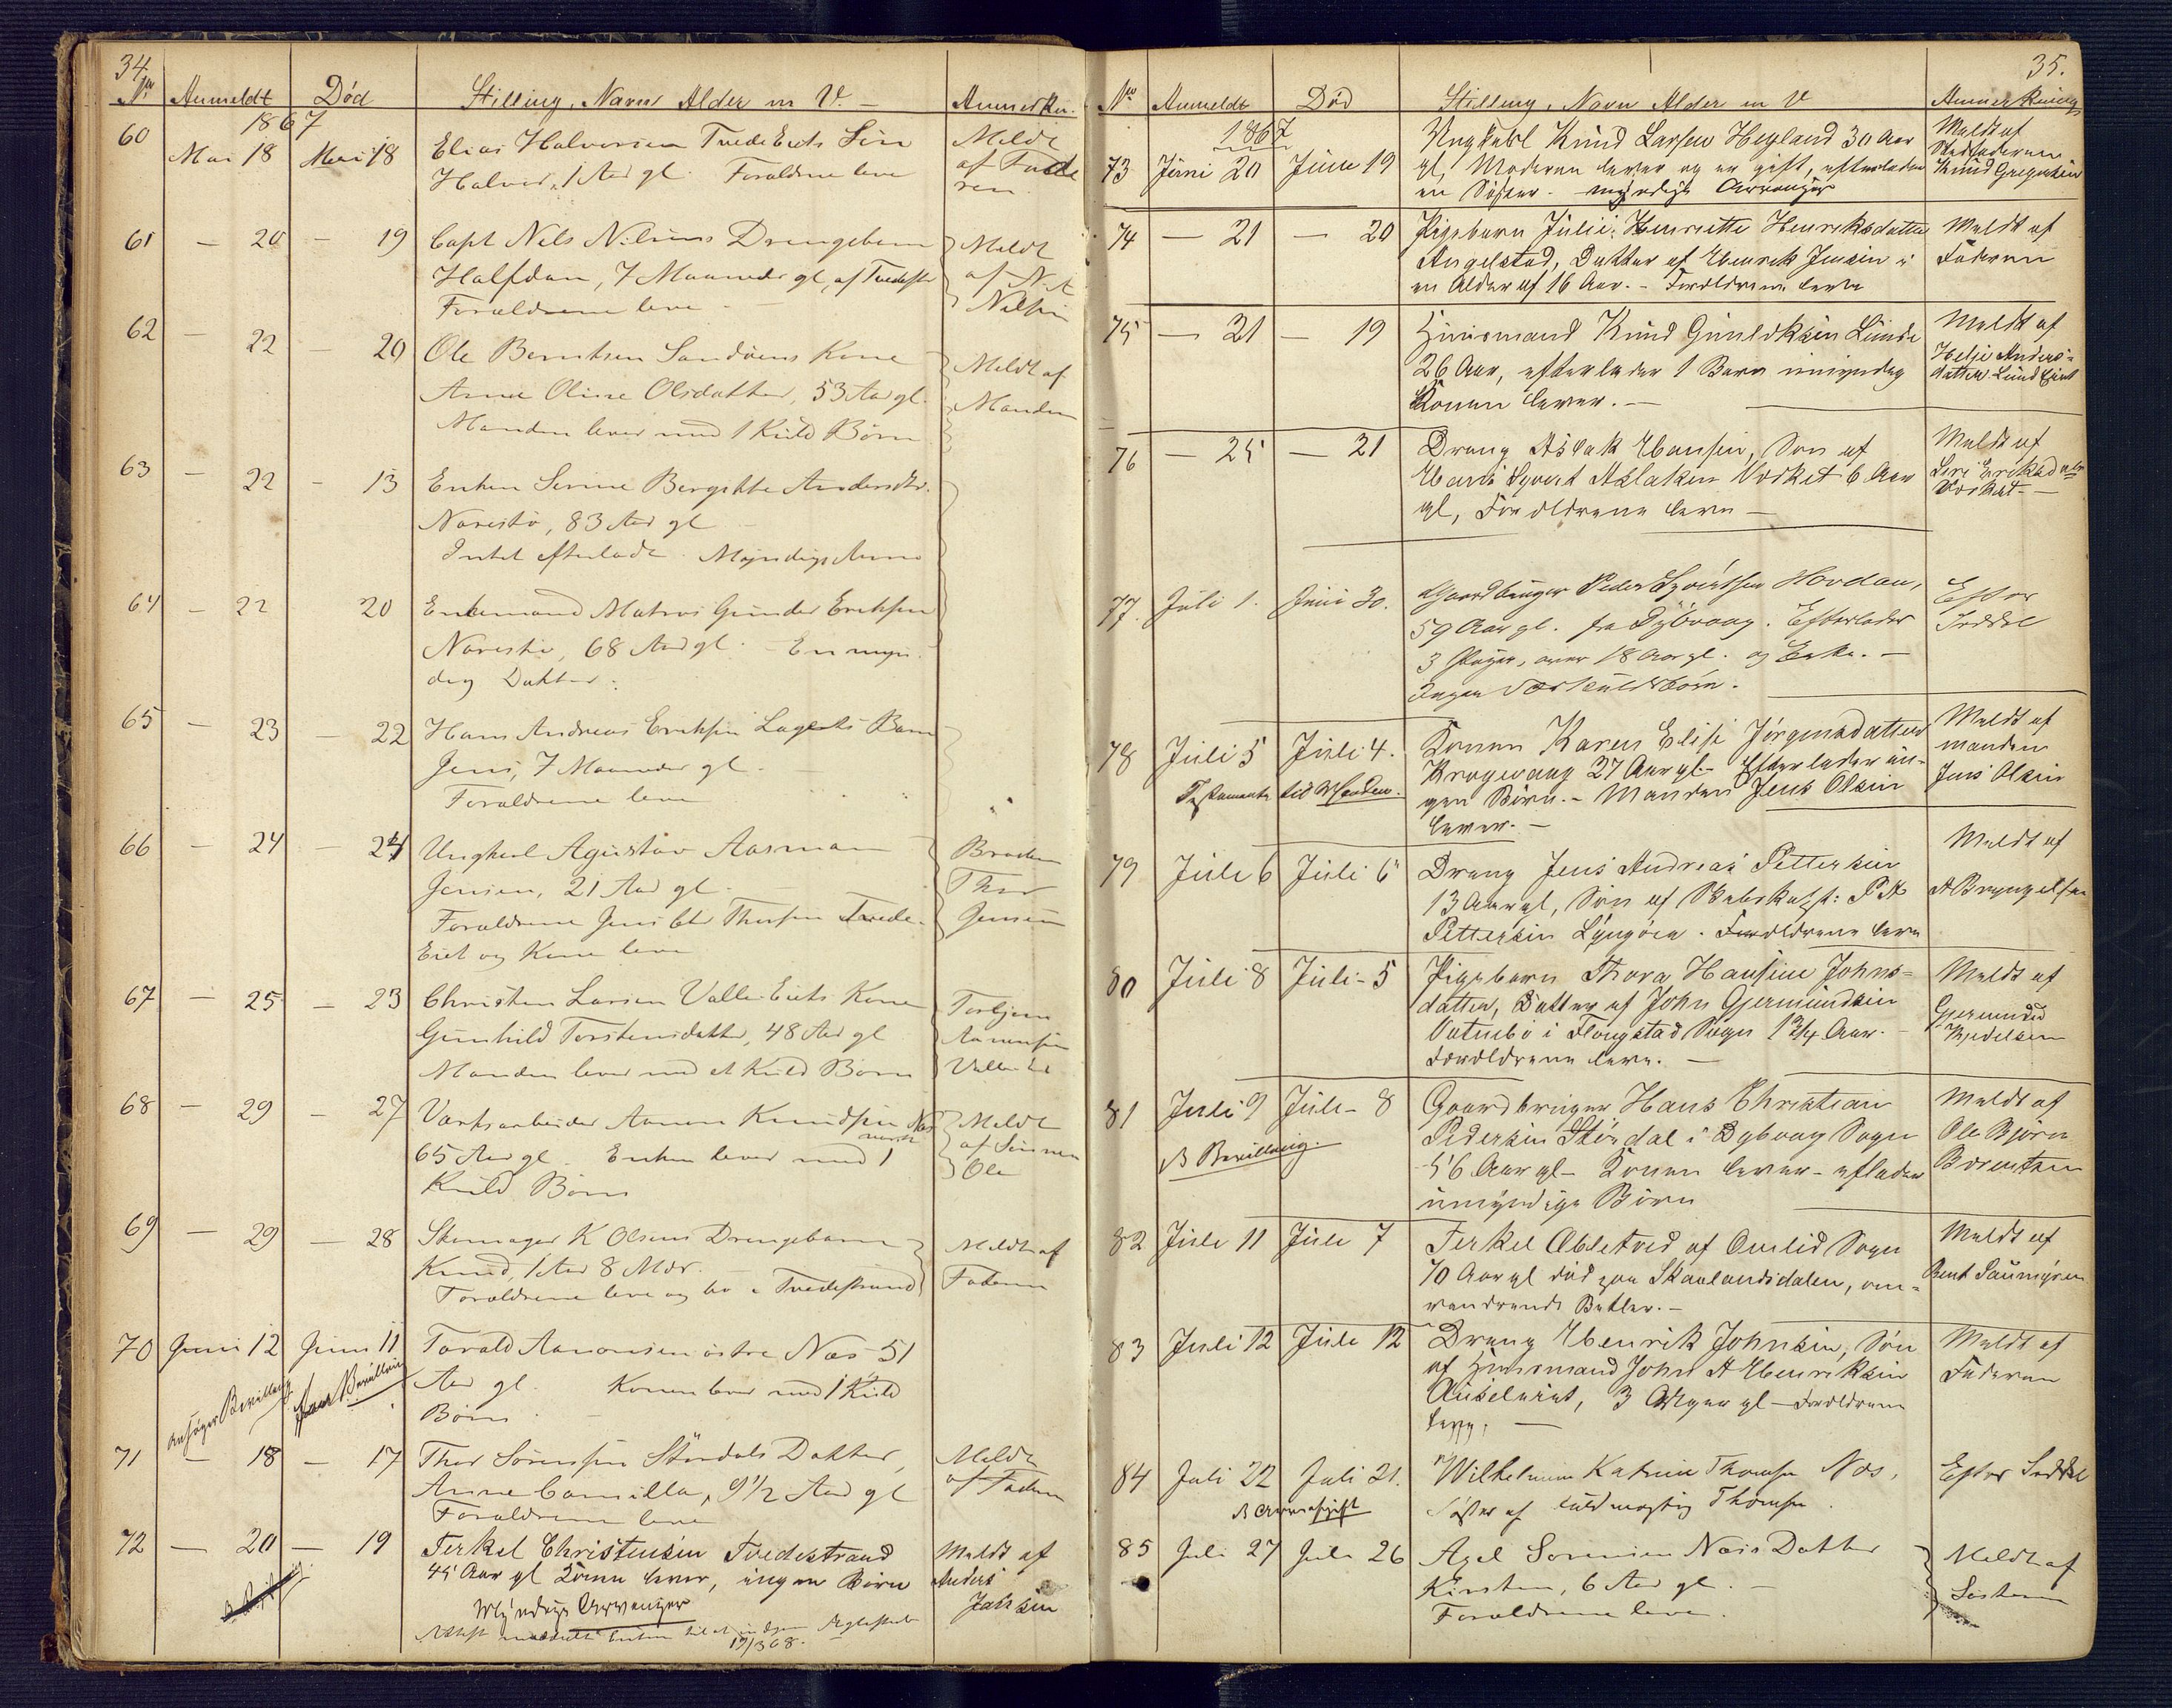 34.
No Anmeldt Död Stilling, Navn Alder m V. Anmerkn.
1867
60 Mai 18 Mai 18 Elias Halvorsen TvedeEiets Sön Meldt
Halvor, 1 Aar gl. Forældrene leve af Fade
ren
61 — 20 — 19 Capt Nels Nilsens Drengebarn Meldt
Halfdan, 7 Maaneder gl, af Tvedestr af N. A
Forældrene leve Nilsen
62 — 22 — 20 Ole Berntsen Sandöens Kone Meldt af
Anne Oline Olsdatter, 53 Aar gl. Manden
Manden lever med 1 Kuld Börn
63 — 22 — 13 Enken Serine Bergitte Andersdtr.
Narestö, 83 Aar gl
Intet efterladt. Myndige Arve
64 — 22 20 Enkemand Matros Gunder Eriksen
Narestö, 68 Aar gl. — En myn
dig Datter.
65 — 23 — 22 Hans Andreas Eriksen Lagests Barn
Jens, 7 Maaneder gl.
Forældrene leve
66 — 24 — 24 Ungkarl Agustav Aasman Broder
Jensen, 21 Aar gl. Thor
Forældrene Jens Chr Thorsen Tvede- Jensen
Eiet og Kone leve
67 — 25 — 23 Christen Larsen ValleEiets Kone Torbjørn
Gunhild Torstensdatter, 48 Aar gl Aanensen
Manden lever med et Kuld Börn Valle
68 — 29 — 27 Værksarbeider Aanon Knudsen Næs Meldt
verk
65 Aar gl. Enken lever med 1 af Sönnen
Kuld Börn Ole
69 — 29 — 28 Skomager K Olsens Drengebarn Meldt af
Knud, 1 Aar 8 Mdr. Faderen
Forældrene leve og bo i Tvedestrand
70 Juni 12 Juni 11 Torald Aanonsen östre Næs 51
ansöger Bevilling Aar gl. Konen lever med 1 Kuld
Börn
71 — 18 — 17 Thor Sörensen Stöndals Datter, Meldt
Anne Camilla, 9 1/2 Aar gl af Faderen
Forældrene leve
72 — 20 — 19 Terkel Christensen Tvedestrand Meldt af
45 Aar gl Konen lever, ingen Börn Anders
Myndige Arvinger Jansen
17/3 68.
35.
No Anmeldt Död Stilling, Navn Alder m V Anmerkning
1867 Ungkarl Knud Larsen Hegland 30 Aar Meldt af
73 Juni 20 Juni 19 gl, Moderen lever og er gift, efterlader Stedfaderen
en Söster. myndige Arvinger Knud Gregersen
74 — 21 — 20 Pigebarn Julie Henriette Henriksdatter Meldt af
Angelstad, Datter af Henrik Jensen i Faderen
en Alder af 16 Aar. – Forældrene leve
75 — 21 — 19 Huusmand Knud Gunleiksen Lunde Meldt af
26 Aar, efterlader 1 Barn umyndig Helje Anders=
Konen lever. — datter Lund Eiet
76 — 25 — 21 Dreng Aslak Hansen, Sön af Meldt af
Hans Syvert Aslaksen Vasket 6 Aar Siri Eriksdatr
gl, Forældrene leve — Vasket —
77. Juli 1. Juni 30. Gaardbruger Peder Syvertsen Hovdan, Efter
59 Aar gl. fra Dybvaag. Efterlader Seddel
3 Piger, over 18 Aar gl. og Enke. —
Ingen Særkuldsbörn.
78 Juli 5 Juli 4. Konen Karen Elise Jörgensdatter Meldt af
Krogevaag 27 Aar gl. Efterlader in- manden
Testamente til Manden. gen Börn. – Manden Jens Olsen Jens Olsen
lever. —
79 Juli 6 Juli 6 Dreng Jens Andreas Pettersen Meldt af
13 Aar gl, Sön af Skibskapt: P A A Bryngelsen
Pettersen Lyngöen. Forældrene leve
80 Juli 8 Juli – 5 Pigebarn Thora Hansine Johns= Meldt af
datter, Datter af John Gjermundsen Gjermund
Vatnebö i Flougstad Sogn 1 3/4 Aar. Kjedelsen
Forældrene leve. —
81 Juli 9 Juli – 8 Gaardbruger Hans Christian Meldt af
B Bevilling. Pedersen Stördal i Dybvaag Sogn Ole Björn
56 Aar gl – Konen lever – eflader Borentsen
umyndige Börn
82 Juli 11 Juli 7 Terkel Ableted af Omlid Sogn Meldt af
70 Aar gl död paa Skaalandsdalen, om=
vandrende Betler. –
83 Juli 12 Juli 12 Dreng Henrik Johnsen, Sön Meldt af
af Huusmand John A Henriksen Faderen
3 Uger gl – Forældrene
leve, —
84 Juli 22 Juli 21. Wilhelmine Katrine Thomsen Næs, Efter Seddel
Söster af fuldmægtig Thomsen.
85 Juli 27 Juli 26 Axel Sorensen Næss Datter Meldt af
Kirsten, 6 Aar gl. —
Forældrene leve.